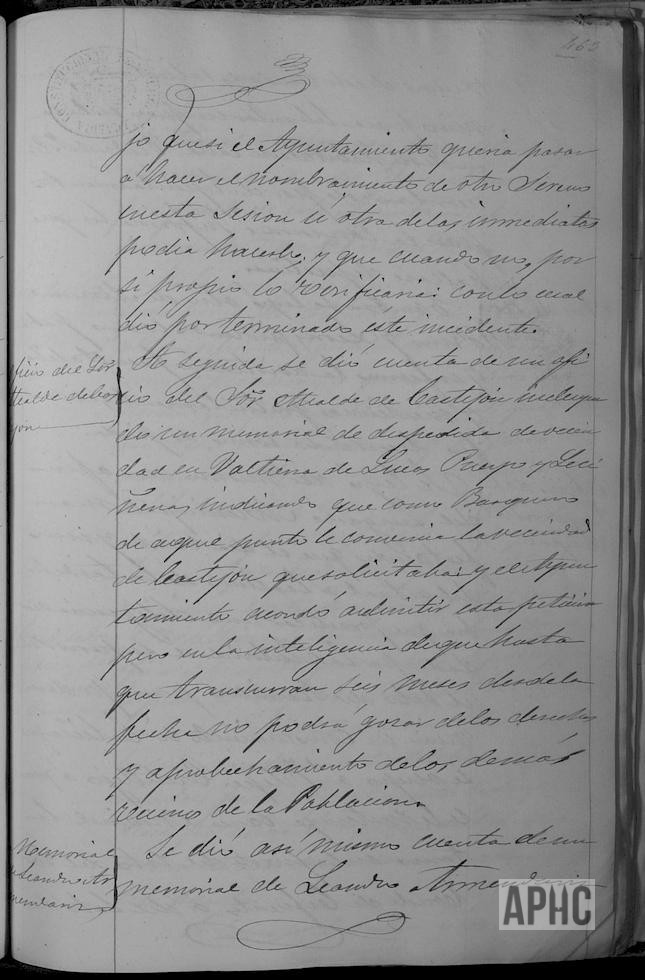 463
jo que si el Ayuntamiento queria pasar
a hacer el nombramiento de otro Sereno
en esta Sesion ú otra de las inmediatas
podia hacerlo; y que cuando no, por
si propio lo verificaria: con lo cual
dió por terminado éste incidente.
ficio del Sor
Alcalde de Cas
jon
A seguida se dió cuenta de un ofi
cio del Sor Alcalde de Castejón incluyen
do un memorial de despedida de vecin
dad en Valtierra de Lucas Puerpo y Leci
ñena, indicando que como Barquero
de aquel punto le convenia la vecindad
de Castejón que solicitaba: y el Ayun
tamiento acordó admitir esta peticion
pero en la inteligencia de que hasta
que transcurran seis meses desde la
fecha no podrá gozar de los derechos
y aprobechamiento de los demás
vecinos de la Poblacion.
Memorial
Leandro Ar
mendariz
Se dió asi mismo cuenta de un
memorial de Leandro Armendariz
APHC